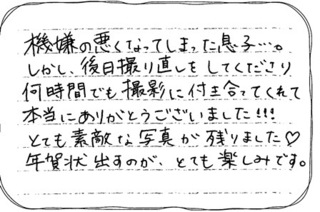 機嫌の悪くなってしまった息子…。
しかし、後日撮り直しをしてくださり
何時間でも撮影に付き合ってくれて
本当にありがとうございました!!!
とても素敵な写真が残りました♡
年賀状出すのが、とても楽しみです。